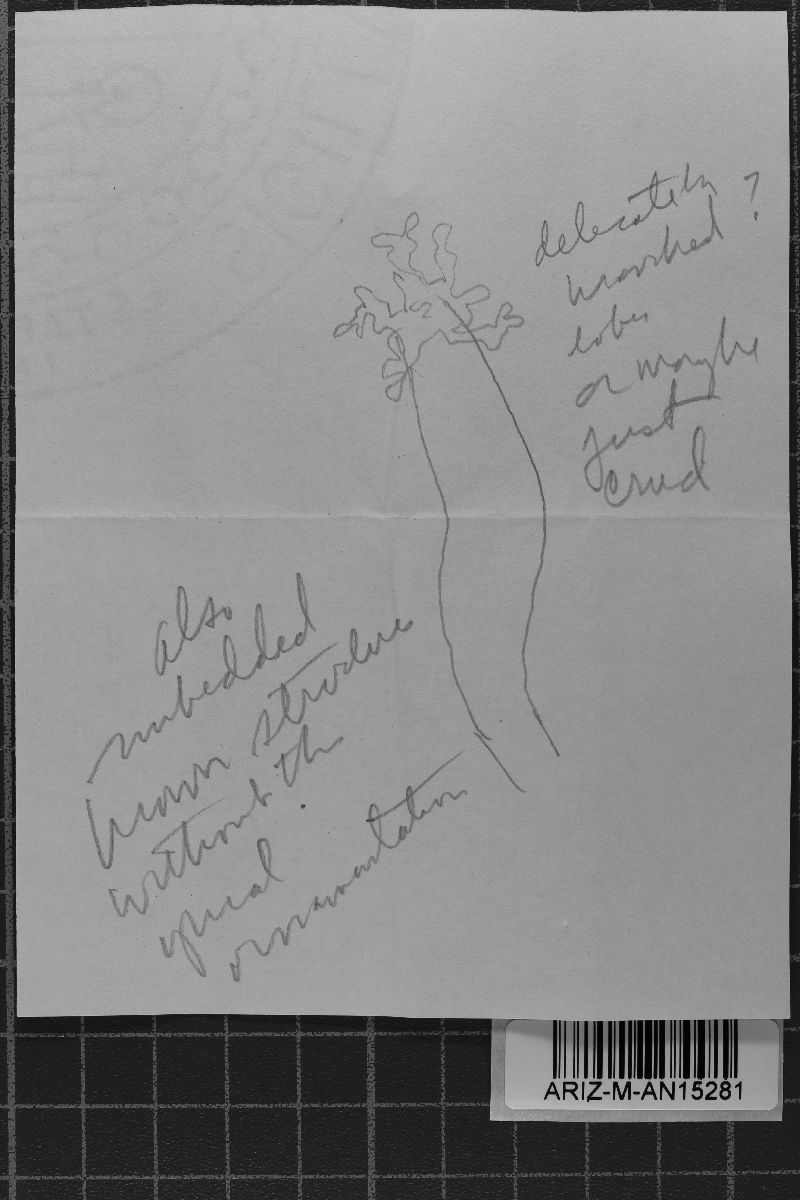 delicately
branched ?
lobes
or maybe
just
crud
also
imbedded
brown structure
without the
apical
ornamentation
ARIZ-M-AN15281